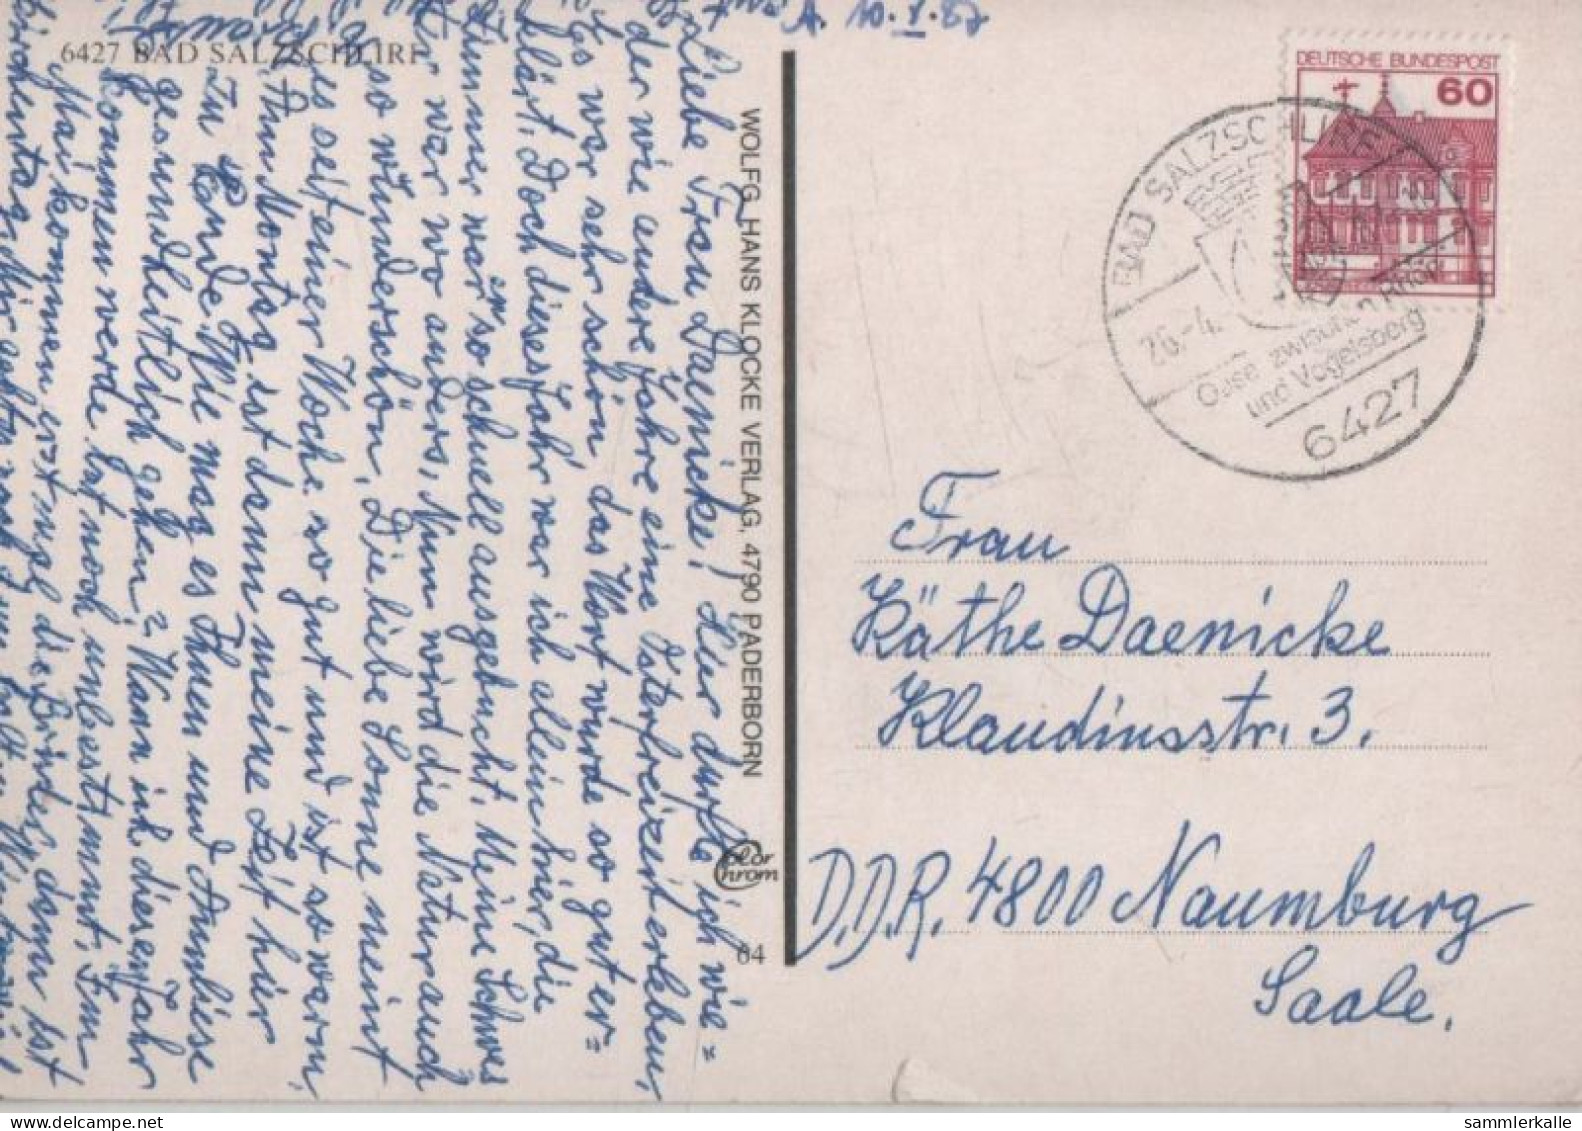 6427 BAD SALZSCHLIRF
A. 10.
Liebe Frau Daenicke! Hier durfte ich wie=
der wie andere Jahre eine Osterfreizeit erleben,
Es war sehr schön, das Wort wurde so gut er=
klärt. Doch dieses Jahr war ich allein hier, die
Zimmer war'n so schnell ausgebucht. Meine Schwes
ter war wo anders, Nun wird die Natur auch
so wunderschön, Die liebe Sonne meint
es seit einer Woche so gut und ist so warm,
Am Montag ist dann meine Zeit hier
zu Ende. Wie mag es Ihnen und Annliese
gesundheitlich gehen? Wann ich dieses Jahr
kommen werde ist noch unbestimmt. Im
Mai kommen erst mal die Brüder, dann ist
WOLFG. HANS KLOCKE VERLAG, 4790 PADERBORN
Color
Chrom
84
DEUTSCHE BUNDESPOST
60
BAD SALZSCHLIRF
26.-4.
Oase zwischen Rhön
und Vogelsberg
6427
Frau
Käthe Daenicke
Klaudiusstr. 3.
D.D.R. 4800 Naumburg
Saale.
sammlerkalle